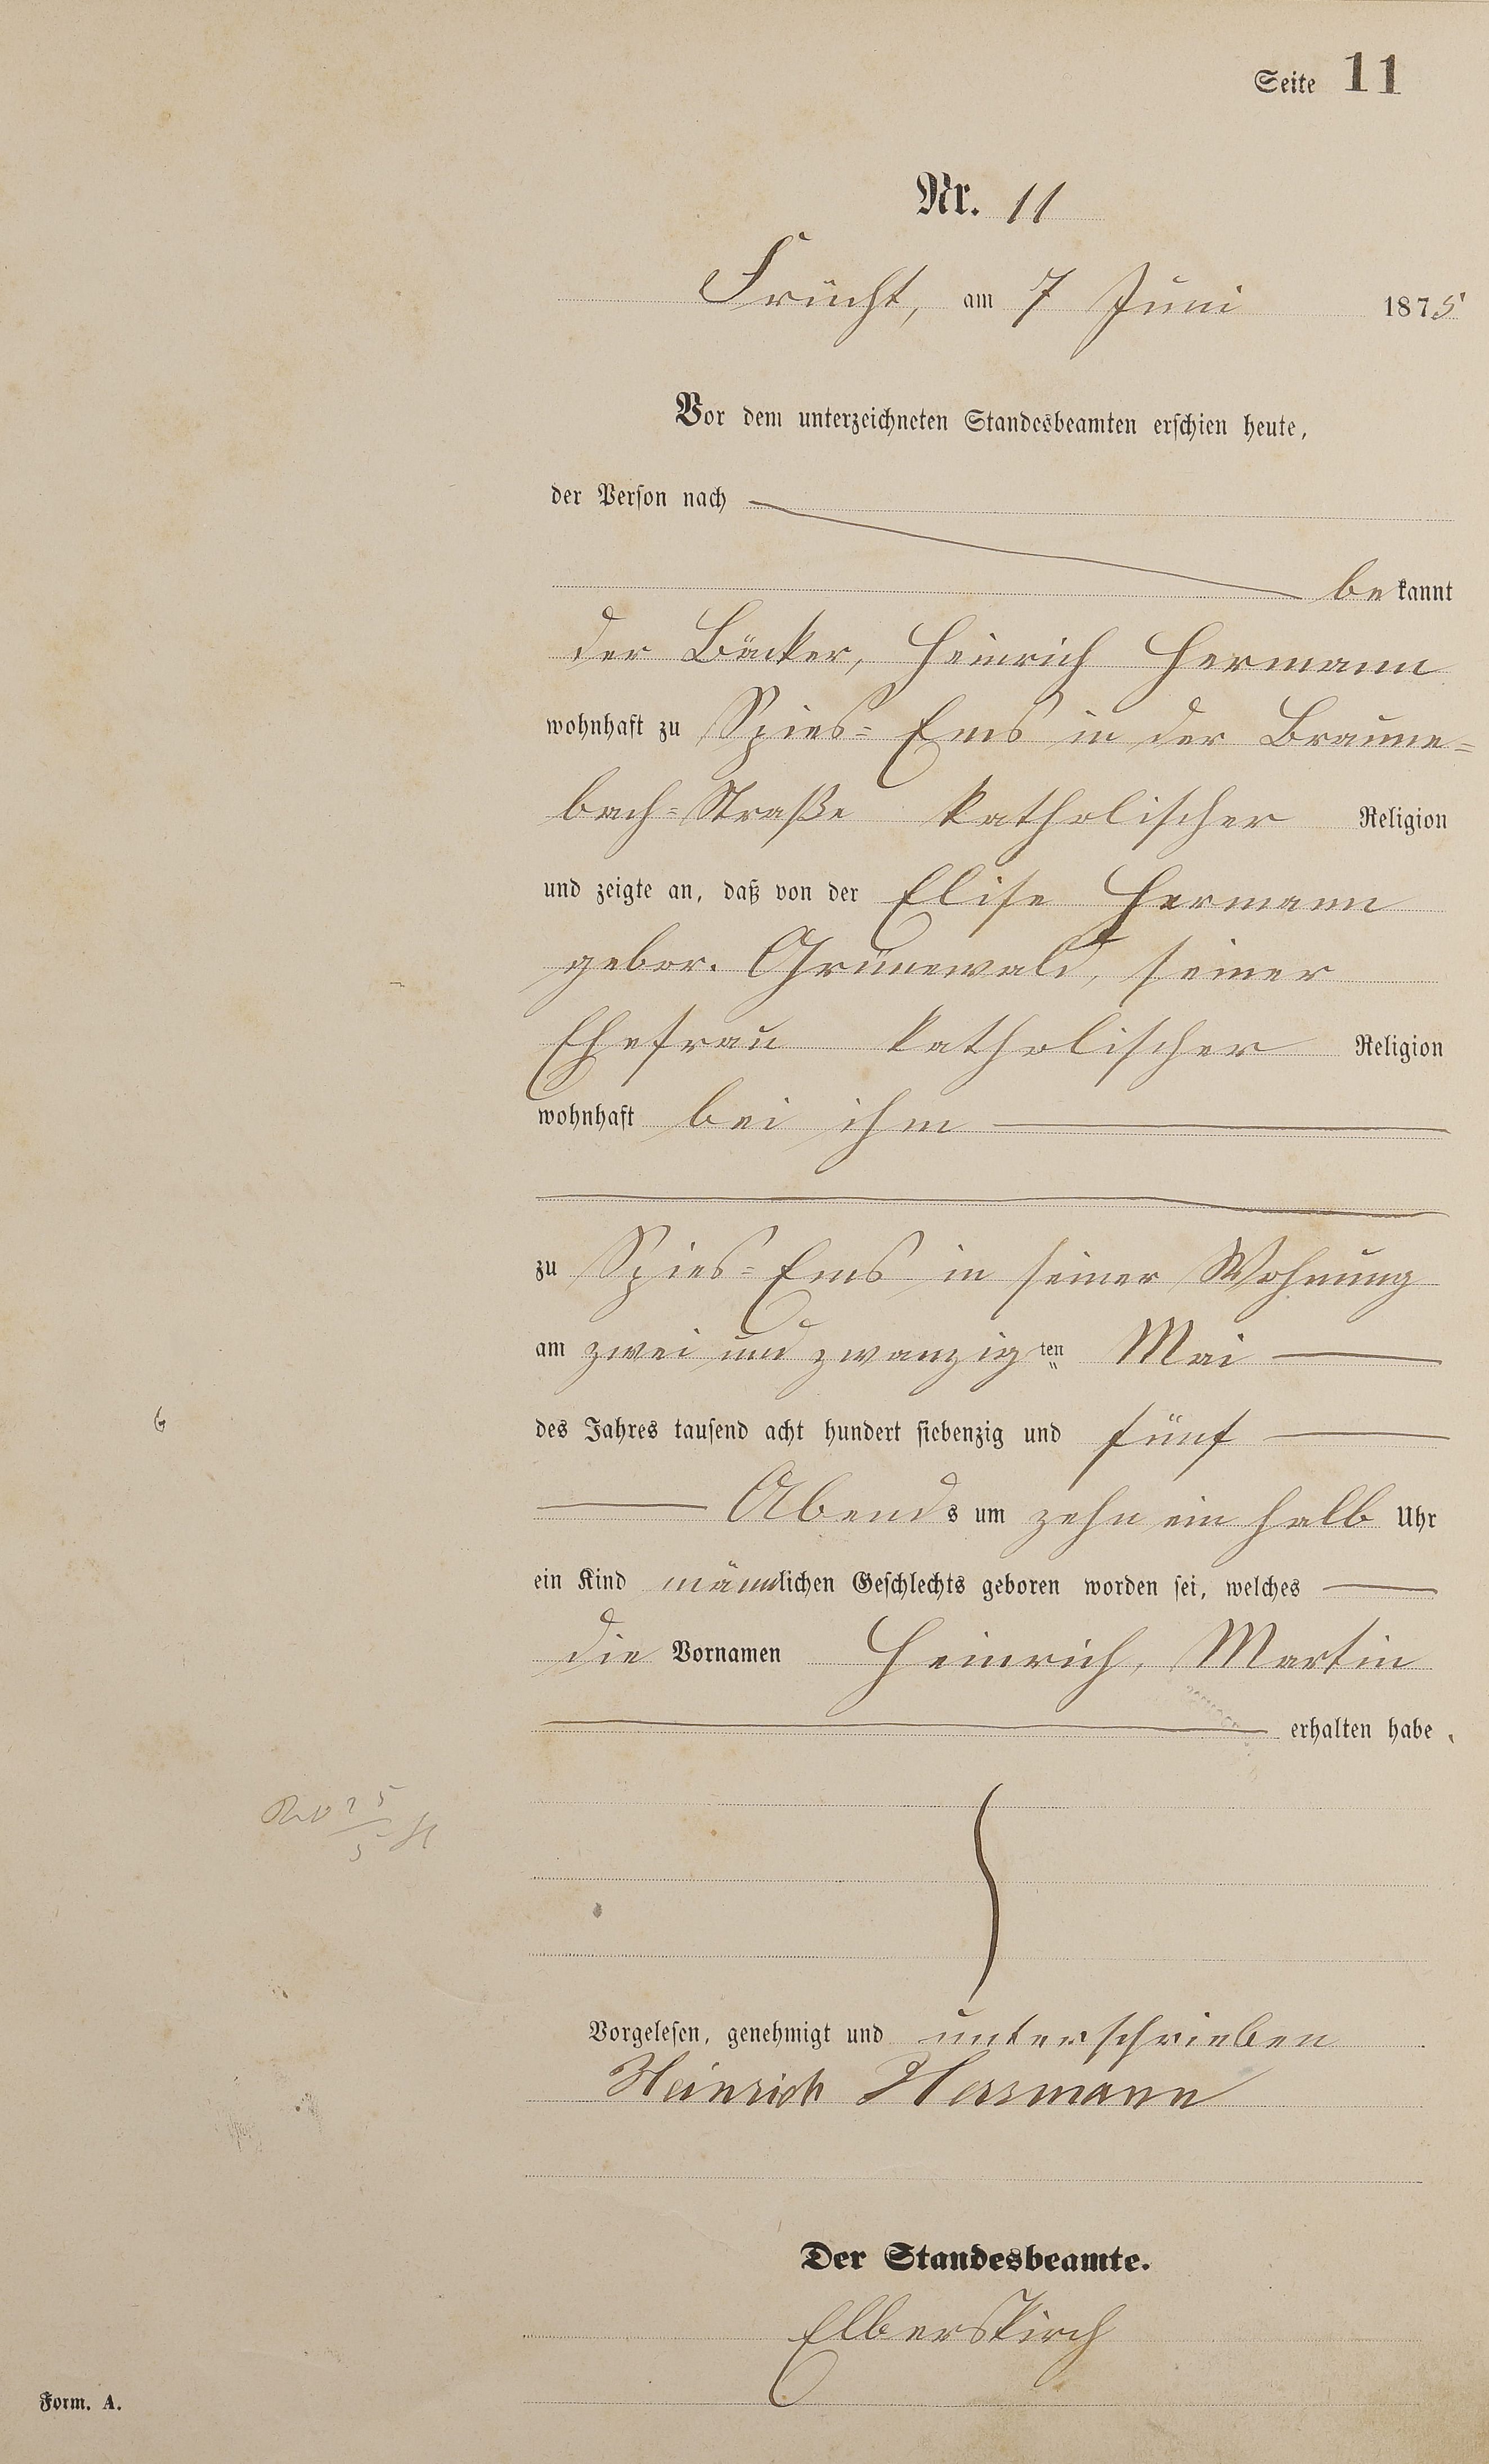 Seite 11
Nr. 11
Frücht, am 7 Juni 1875
Vor dem unterzeichneten Standesbeamten erschien heute,
der Person nach
bekannt
der Bäcker, Heinrich Hermann
wohnhaft zu Spies-Ems in der Braune-
bach-Straße katholischer Religion
und zeigte an, daß von der Elise Hermann
gebor. Grünewald, seiner
Ehefrau katholischer Religion
wohnhaft bei ihm
zu Spies-Ems in seiner Wohnung
am zwei und zwanzigten Mai
des Jahres tausend acht hundert siebenzig und fünf
Abends um zehn ein halb Uhr
ein Kind männlichen Geschlechts geboren worden sei, welches
die Vornamen Heinrich, Martin
erhalten habe.
Vorgelesen, genehmigt und unterschrieben
Heinrich Hermann
Der Standesbeamte.
Elberskirch
Form. A.